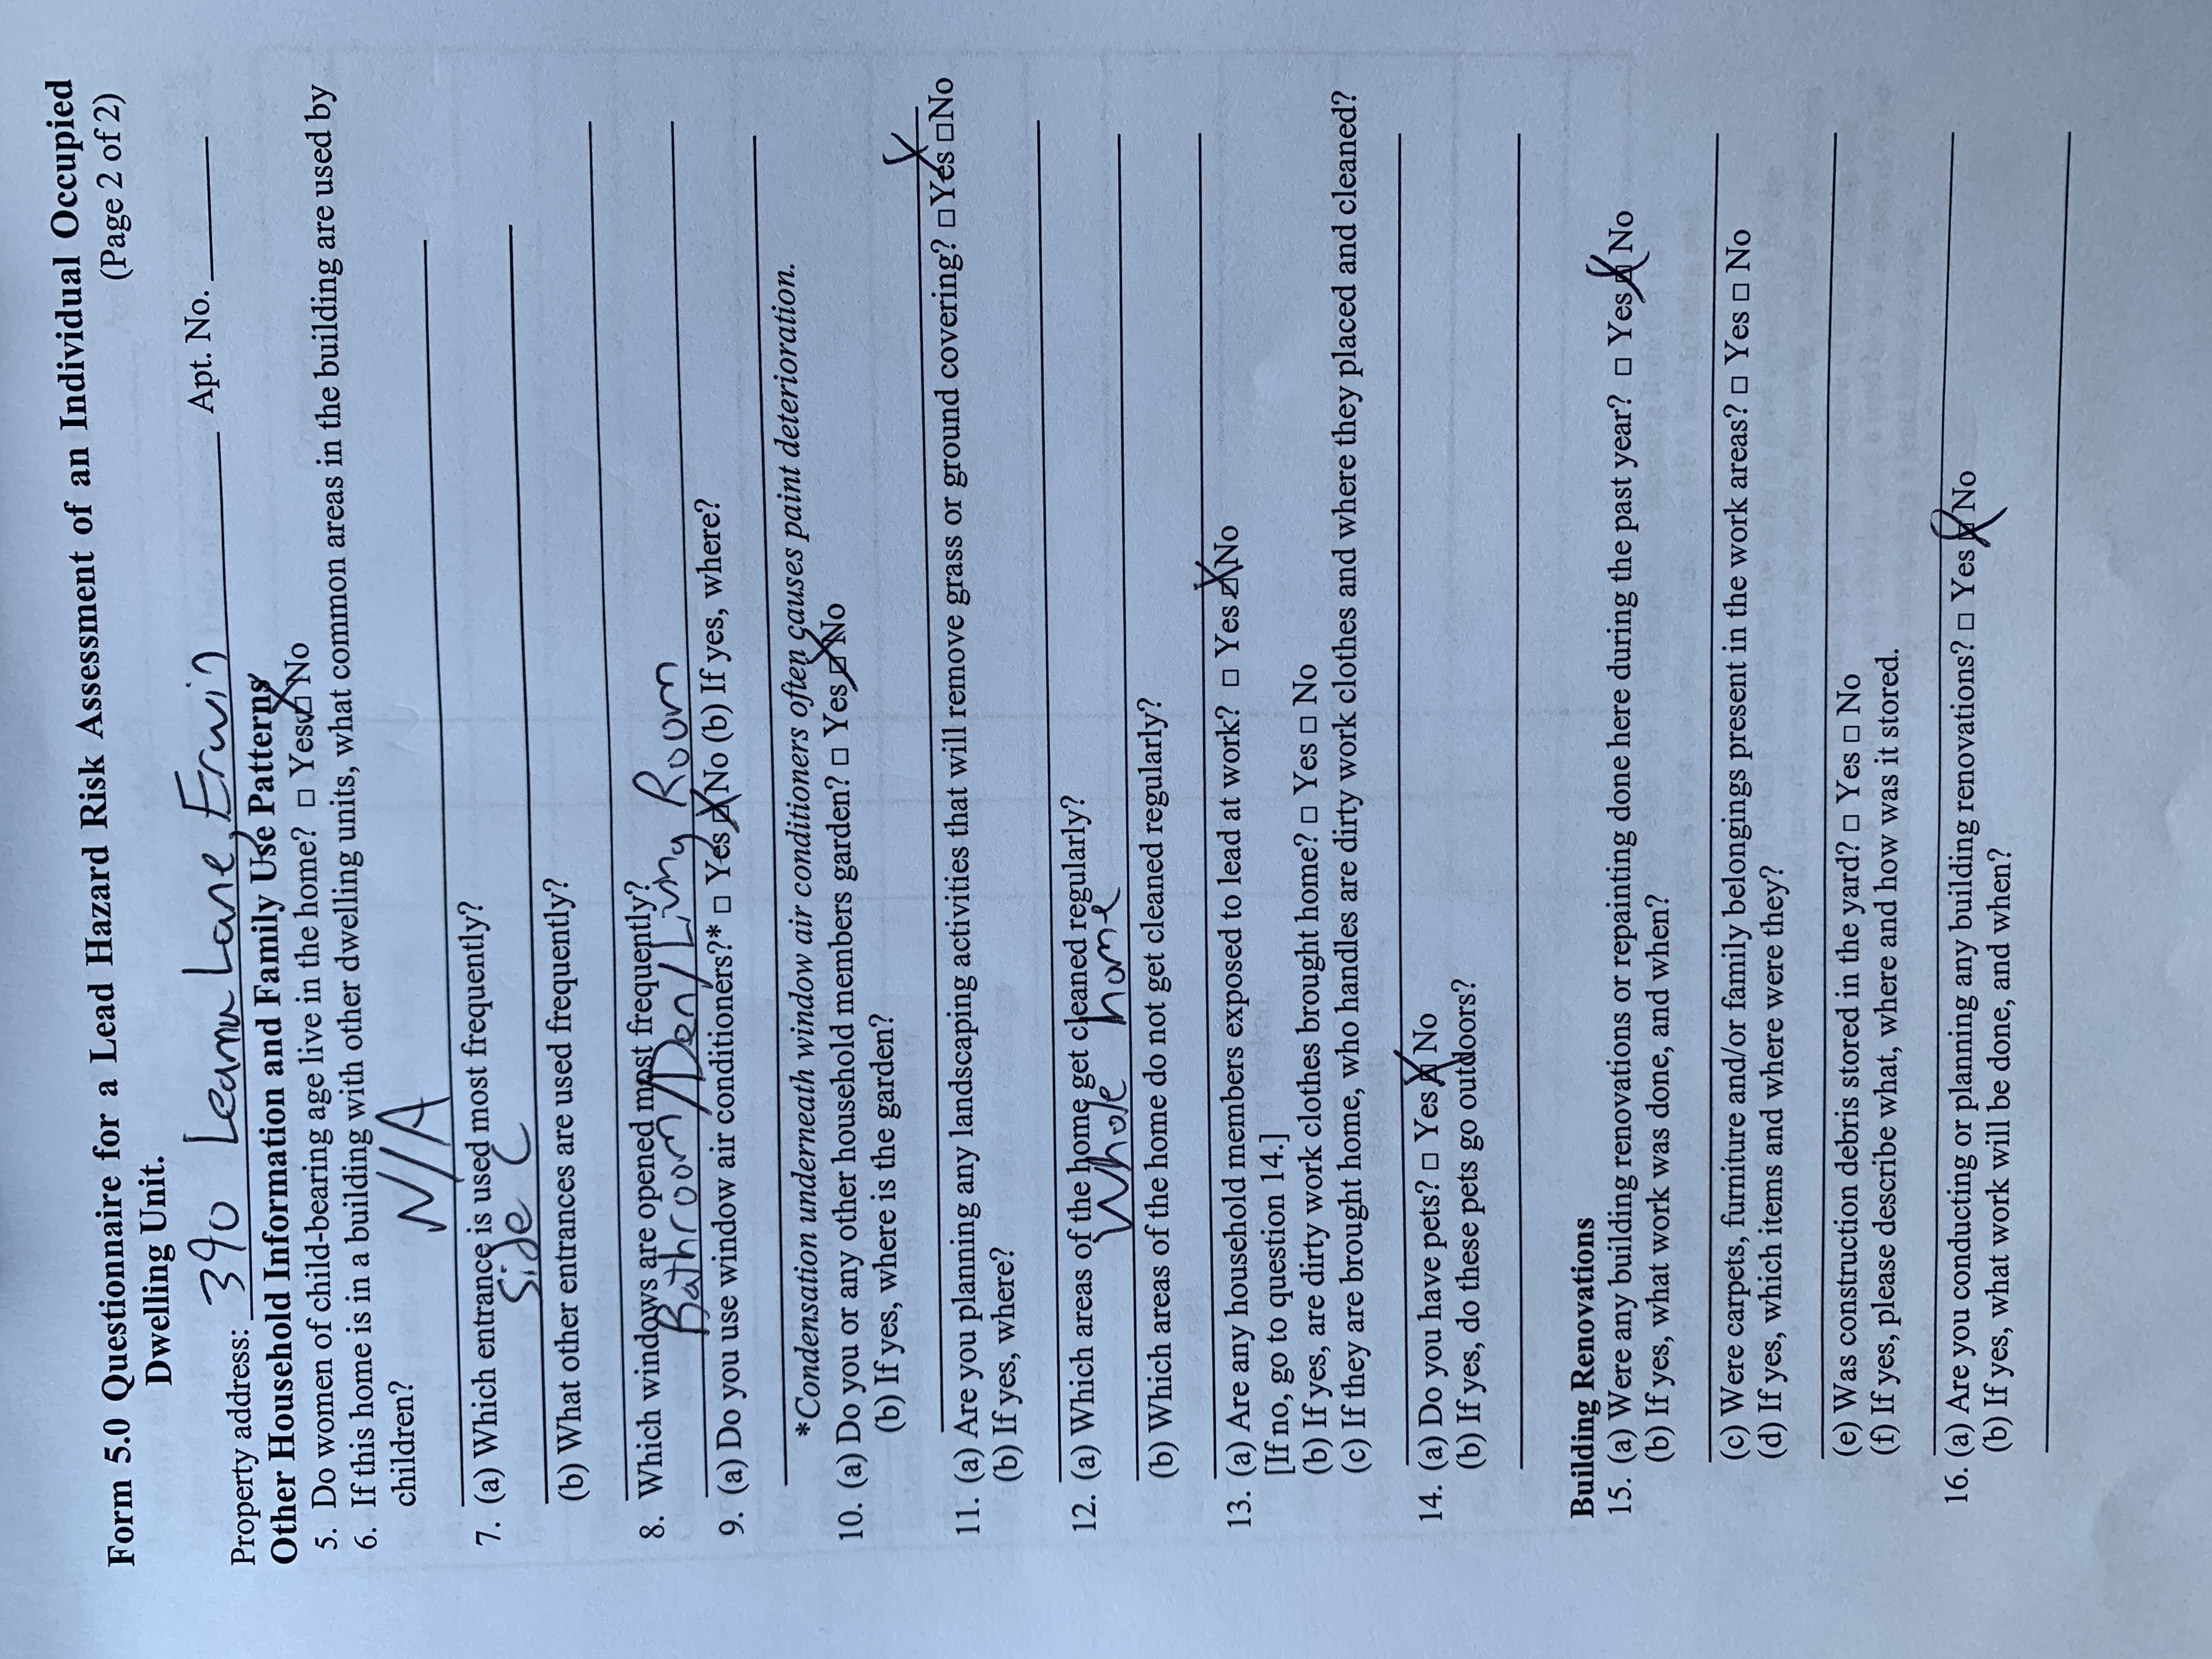 Form 5.0 Questionnaire for a Lead Hazard Risk Assessment of an Individual Occupied
Dwelling Unit. (Page 2 of 2)
Property address: 390 Leamu Lane, Erwin Apt. No.
Other Household Information and Family Use Patterns
5. Do women of child-bearing age live in the home? □ Yes ☒ No
6. If this home is in a building with other dwelling units, what common areas in the building are used by
children?
N/A
7. (a) Which entrance is used most frequently?
Side C
(b) What other entrances are used frequently?
8. Which windows are opened most frequently?
Bathroom/Den/Living Room
9. (a) Do you use window air conditioners?* □ Yes ☒ No (b) If yes, where?
*Condensation underneath window air conditioners often causes paint deterioration.
10. (a) Do you or any other household members garden? □ Yes ☒ No
(b) If yes, where is the garden?
X
11. (a) Are you planning any landscaping activities that will remove grass or ground covering? □Yes □No
(b) If yes, where?
12. (a) Which areas of the home get cleaned regularly?
Whole home
(b) Which areas of the home do not get cleaned regularly?
13. (a) Are any household members exposed to lead at work? □ Yes ☒ No
[If no, go to question 14.]
(b) If yes, are dirty work clothes brought home? □ Yes □ No
(c) If they are brought home, who handles are dirty work clothes and where they placed and cleaned?
14. (a) Do you have pets? □ Yes ☒ No
(b) If yes, do these pets go outdoors?
Building Renovations
15. (a) Were any building renovations or repainting done here during the past year? □ Yes ☒ No
(b) If yes, what work was done, and when?
(c) Were carpets, furniture and/or family belongings present in the work areas? □ Yes □ No
(d) If yes, which items and where were they?
(e) Was construction debris stored in the yard? □ Yes □ No
(f) If yes, please describe what, where and how was it stored.
16. (a) Are you conducting or planning any building renovations? □ Yes ☒ No
(b) If yes, what work will be done, and when?